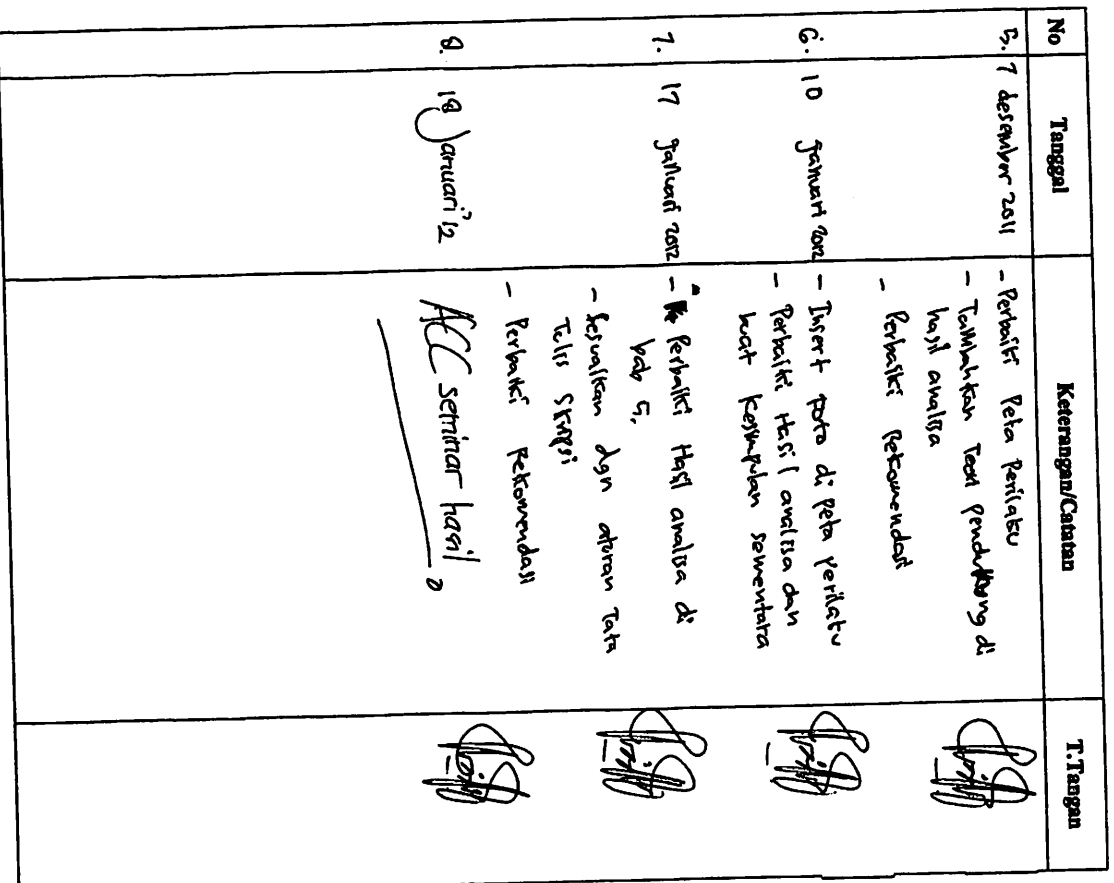 No Tanggal Keterangan/Catatan T.Tangan
5. 7 desember 2011 - Perbaiki Peta Perilaku
- Tambahkan Teori pendukung di
hasil analisa
- Perbaiki Rekomendasi
6. 10 januari 2012 - Insert foto di peta perilaku
- Perbaiki Hasil analisa dan
buat kesimpulan sementara
7. 17 januari 2012 - Perbaiki Hasil analisa di
bab 5.
- Sesuaikan dgn aturan Tata
Tulis Skripsi
- Perbaiki Rekomendasi
8. 18 Januari '12 ACC seminar hasil